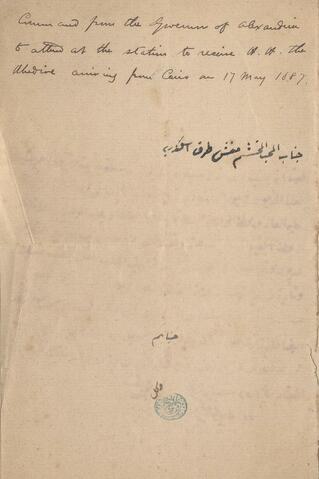 Command from the Governor of Alexandria
to attend at the station to receive H. H. the
Khedive arriving from Cairo on 17 May 1887.
جناب المحب المحتشم مفتش طرف اسكندريه
جنابكم